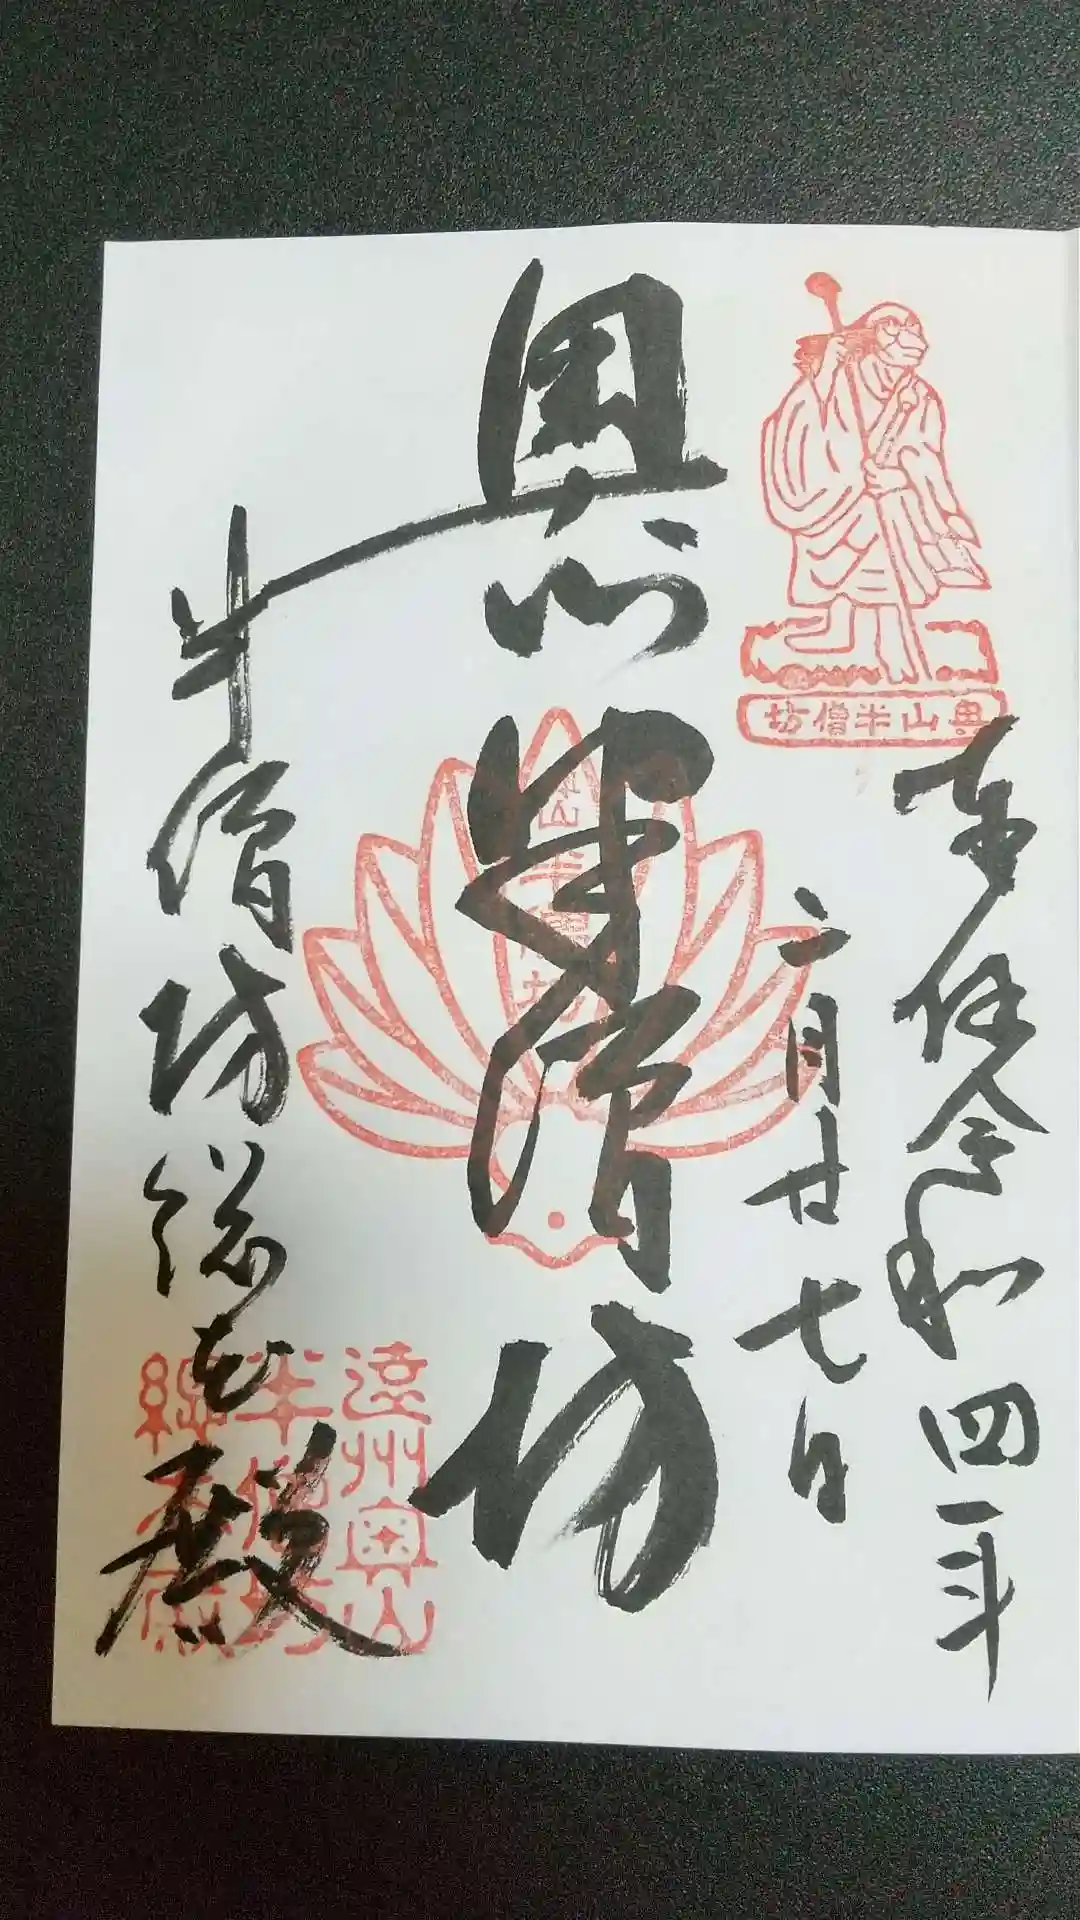 奥山半僧坊
奉拝令和四年
二月廿七日
奥山半僧坊
半僧坊総本殿
遠州奥山
半僧坊
総本殿